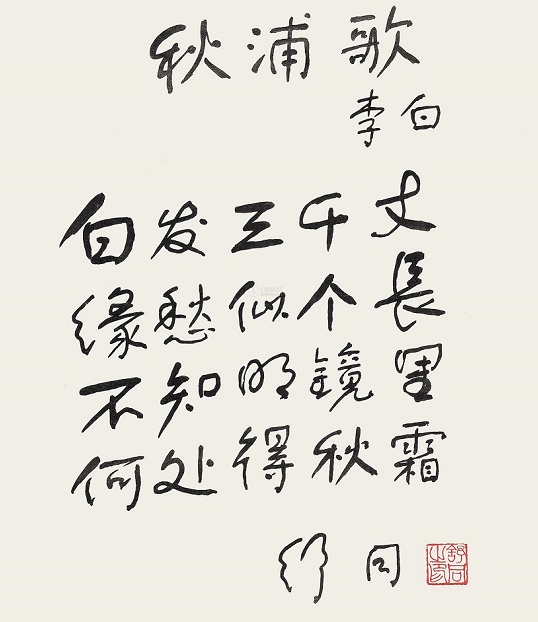 秋浦歌
李白
白发三千丈
缘愁似个長
不知明镜里
何处得秋霜
舒同
舒同之印